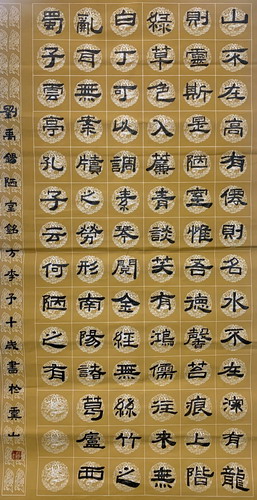 山不在高有僊則名水不在深有龍
則靈斯是陋室惟吾德馨苔痕上階
綠草色入簾青談笑有鴻儒往來無
白丁可以調素琴閱金經無絲竹之
亂耳無案牘之勞形南陽諸葛廬西
蜀子雲亭孔子云何陋之有
劉禹錫陋室銘方李予十歲書於靈山